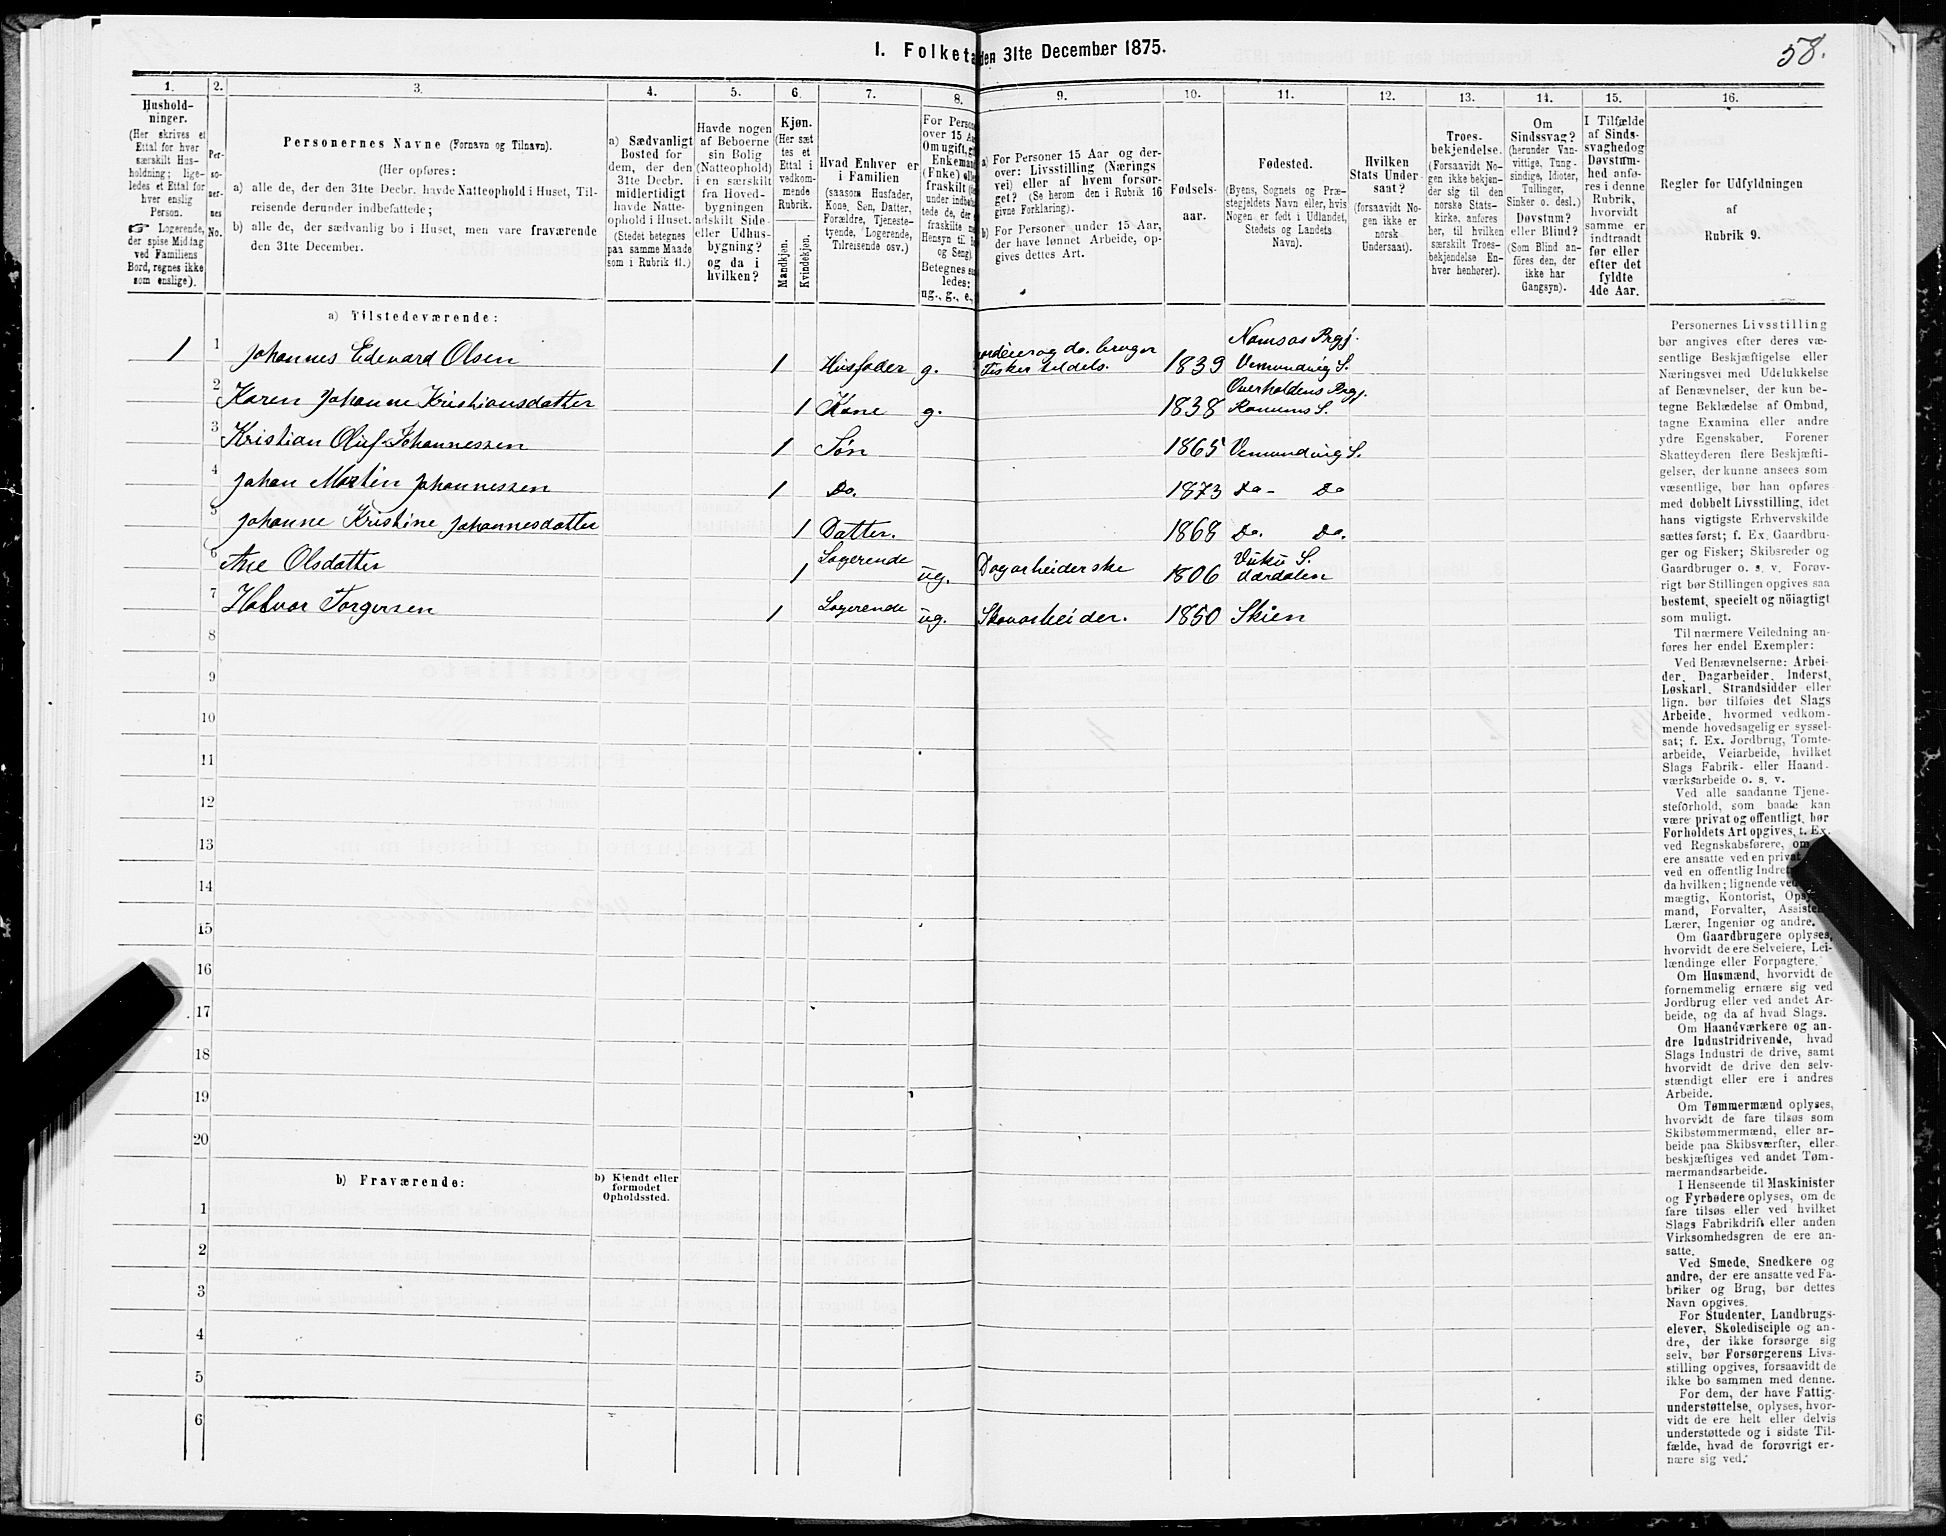 I. Folketa den 31te December 1875.
58.
1. 2. 3. 4. 5. 6. 7. 8. 9. 10. 11. 12. 13. 14. 15. 16.
Hushold-
ninger.
(Her skrives et
Ettal for hver
særskilt Hus-
holdning; lige-
ledes et Ettal for
hver enslig
Person.
☞ Logerende,
der spise Middag
ved Familiens
Bord, regnes ikke
som enslige).
Per-
so-
ner-
nes
No.
Personernes Navne (Fornavn og Tilnavn).
(Her opføres:
a) alle de, der den 31te Decbr. havde Natteophold i Huset, Til-
reisende derunder indbefattede;
b) alle de, der sædvanlig bo i Huset, men vare fraværende
den 31te December.
a) Sædvanligt
Bosted for
dem, der den
31te Decbr.
midlertidigt
havde Natte-
ophold i Huset.
(Stedet betegnes
paa samme Maade
som i Rubrik 11.)
Havde nogen
af Beboerne
sin Bolig
(Natteophold)
i en særskilt
fra Hoved-
bygningen
adskilt Side-
eller Udhus-
bygning?
og da i
hvilken?
Kjøn.
(Her sæt-
tes et
Ettal i
vedkom-
mende
Rubrik.
Mandkjøn.
Kvindekjøn.
Hvad Enhver er
i Familien
(saasom Husfader,
Kone, Søn, Datter,
Forældre, Tjeneste-
tyende, Logerende,
Tilreisende osv.)
For Perso
over 15 Aa
Om ugift, g
Enkeman
(Enke) el
fraskilt
under indbe
tede de, der
fraskilte
Hensyn til
og Seng).
Betegnes s
ledes:
ug., g., e.,
a) For Personer 15 Aar og der-
over: Livsstilling (Nærings
vei) eller af hvem forsør-
get? (Se herom den i Rubrik 16
givne Forklaring).
b) For Personer under 15 Aar,
der have lønnet Arbeide, op-
gives dettes Art.
Fødsels-
aar.
Fødested.
(Byens, Sognets og Præ-
stegjeldets Navn eller, hvis
Nogen er født i Udlandet,
Stedets og Landets
Navn).
Hvilken
Stats Under-
saat?
(forsaavidt No-
gen ikke er
norsk
Undersaat).
Troes-
bekjendelse.
(Forsaavidt No-
gen ikke bekjen-
der sig til den
norske Stats-
kirke, anføres
her, til hvilken
særskilt Troes-
bekjendelse En-
hver henhører).
Om
Sindssvag?
(herunder Van-
vittige, Tung-
sindige, Idioter,
Tullinger,
Sinker o. desl.)
Døvstum?
eller Blind?
(Som Blind an-
föres den, der
ikke har
Gangsyn).
I Tilfælde
af Sinds-
svaghed og
Døvstum-
hed anfø-
res i denne
Rubrik,
hvorvidt
samme er
indtraadt
før eller
efter det
fyldte
4de Aar.
Regler for Udfyldningen
af
Rubrik 9.
a) Tilstedeværende:
1 1 Johannes Edevard Olsen 1 Husfader g. ordeier og do. bruger Fisker tildels. 1839 Namsos Prgj. Vemundvig S.
2 Karen Johanne Kristiansdatter 1 Kone g. 1838 Overhaldens Prgj. Ranums S.
3 Kristian Oluf Johannessen 1 Søn 1865 Vemundvig S.
4 Johan Martin Johannessen 1 Do. 1873 Do- Do
5 Johanne Kristine Johannesdatter 1 Datter. 1868 Do. Do.
6 Ane Olsdatter 1 Logerende ug. Dagarbeiderske 1806 Vuku S. Værdalen
7 Halvor Torgersen 1 Logerende ug. Skovarbeider. 1850 Skien
8
9
10
11
12
13
14
15
16
17
18
19
20
b) Fraværende:
b) Kjendt eller
formodet
Opholdssted.
1
2
3
4
5
6
Personernes Livsstilling
bør angives efter deres væ-
sentlige Beskjæftigelse eller
Næringsvei med Udelukkelse
af Benævnelser, der kun be-
tegne Beklædelse af Ombud,
tagne Examina eller andre
ydre Egenskaber. Forener
Skatteyderen flere Beskjæfti-
gelser, der kunne ansees som
væsentlige, bør han opføres
med dobbelt Livsstilling, idet
hans vigtigste Erhvervskilde
sættes først; f. Ex. Gaardbru-
ger og Fisker; Skibsreder og
Gaardbruger o. s. v. Forøv-
rigt bør Stillingen opgives saa
bestemt, specielt og nöiagtigt
som muligt.
Til nærmere Veiledning an-
føres her endel Exempler:
Ved Benævnelserne: Arbei-
der, Dagarbeider, Inderst,
Løskarl, Strandsidder eller
lign. bør tilføies det Slags
Arbeide, hvormed vedkom-
mende hovedsagelig er syssel-
sat; f. Ex. Jordbrug, Tomte-
arbeide, Veiarbeide, hvilket
Slags Fabrik- eller Haand-
værksarbeide o. s. v.
Ved alle saadanne Tjene-
steforhold, som baade kan
være privat og offentligt, bør
Forholdets Art opgives, t. Ex.
ved Regnskabsførere, om
ere ansatte ved en privat
ved en offentlig Indret
da hvilken; lignende ved
mægtig, Kontorist, Opsy
mand, Forvalter, Assisten
Lærer, Ingeniør og andre.
Om Gaardbrugere oplyses,
hvorvidt de ere Selveiere, Lei-
lændinge eller Forpagtere.
Om Husmænd, hvorvidt de
fornemmelig ernære sig ved
Jordbrug eller ved andet Ar-
beide, og da af hvad Slags.
Om Haandværkere og an-
dre Industridrivende, hvad
Slags Industri de drive, samt
hvorvidt de drive den selv-
stændigt eller ere i andres
Arbeide.
Om Tømmermænd oplyses,
hvorvidt de fare tilsøs som
Skibstømmermænd, eller ar-
beide paa Skibsværfter, eller
beskjæftiges ved andet Tøm-
mermandsarbeide.
I Henseende til Maskinister
og Fyrbødere oplyses, om de
fare tilsøs eller ved hvilket
Slags Fabrikdrift eller anden
Virksomhedsgren de ere an-
satte.
Ved Smede, Snedkere og
andre, der ere ansatte ved Fa-
briker og Brug, bør dettes
Navn opgives.
For Studenter, Landbrugs-
elever, Skoledisciple og an-
dre, der ikke forsørge sig
selv, bør Forsørgerens Livs-
stilling opgives, forsaavidt de
ikke bo sammen med denne.
For dem, der have Fattig-
understøttelse, oplyses, hvor-
vidt de ere helt eller delvis
understøttede og i sidste Til-
fælde, hvad de forøvrigt er-
nære sig ved.